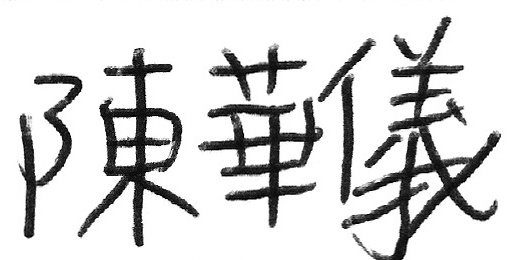 陳華儀